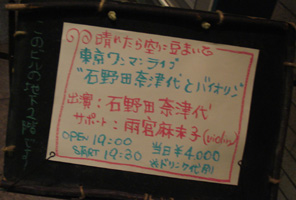 晴れたら空に豆まいて
東京ワンマンライブ
"石野田奈津代とバイオリン"
出演：石野田奈津代
サポート：雨宮麻未子(violin)
OPEN 19:00
START 19:30
当日¥4,000
※ドリンク代別
この下の地下2階です